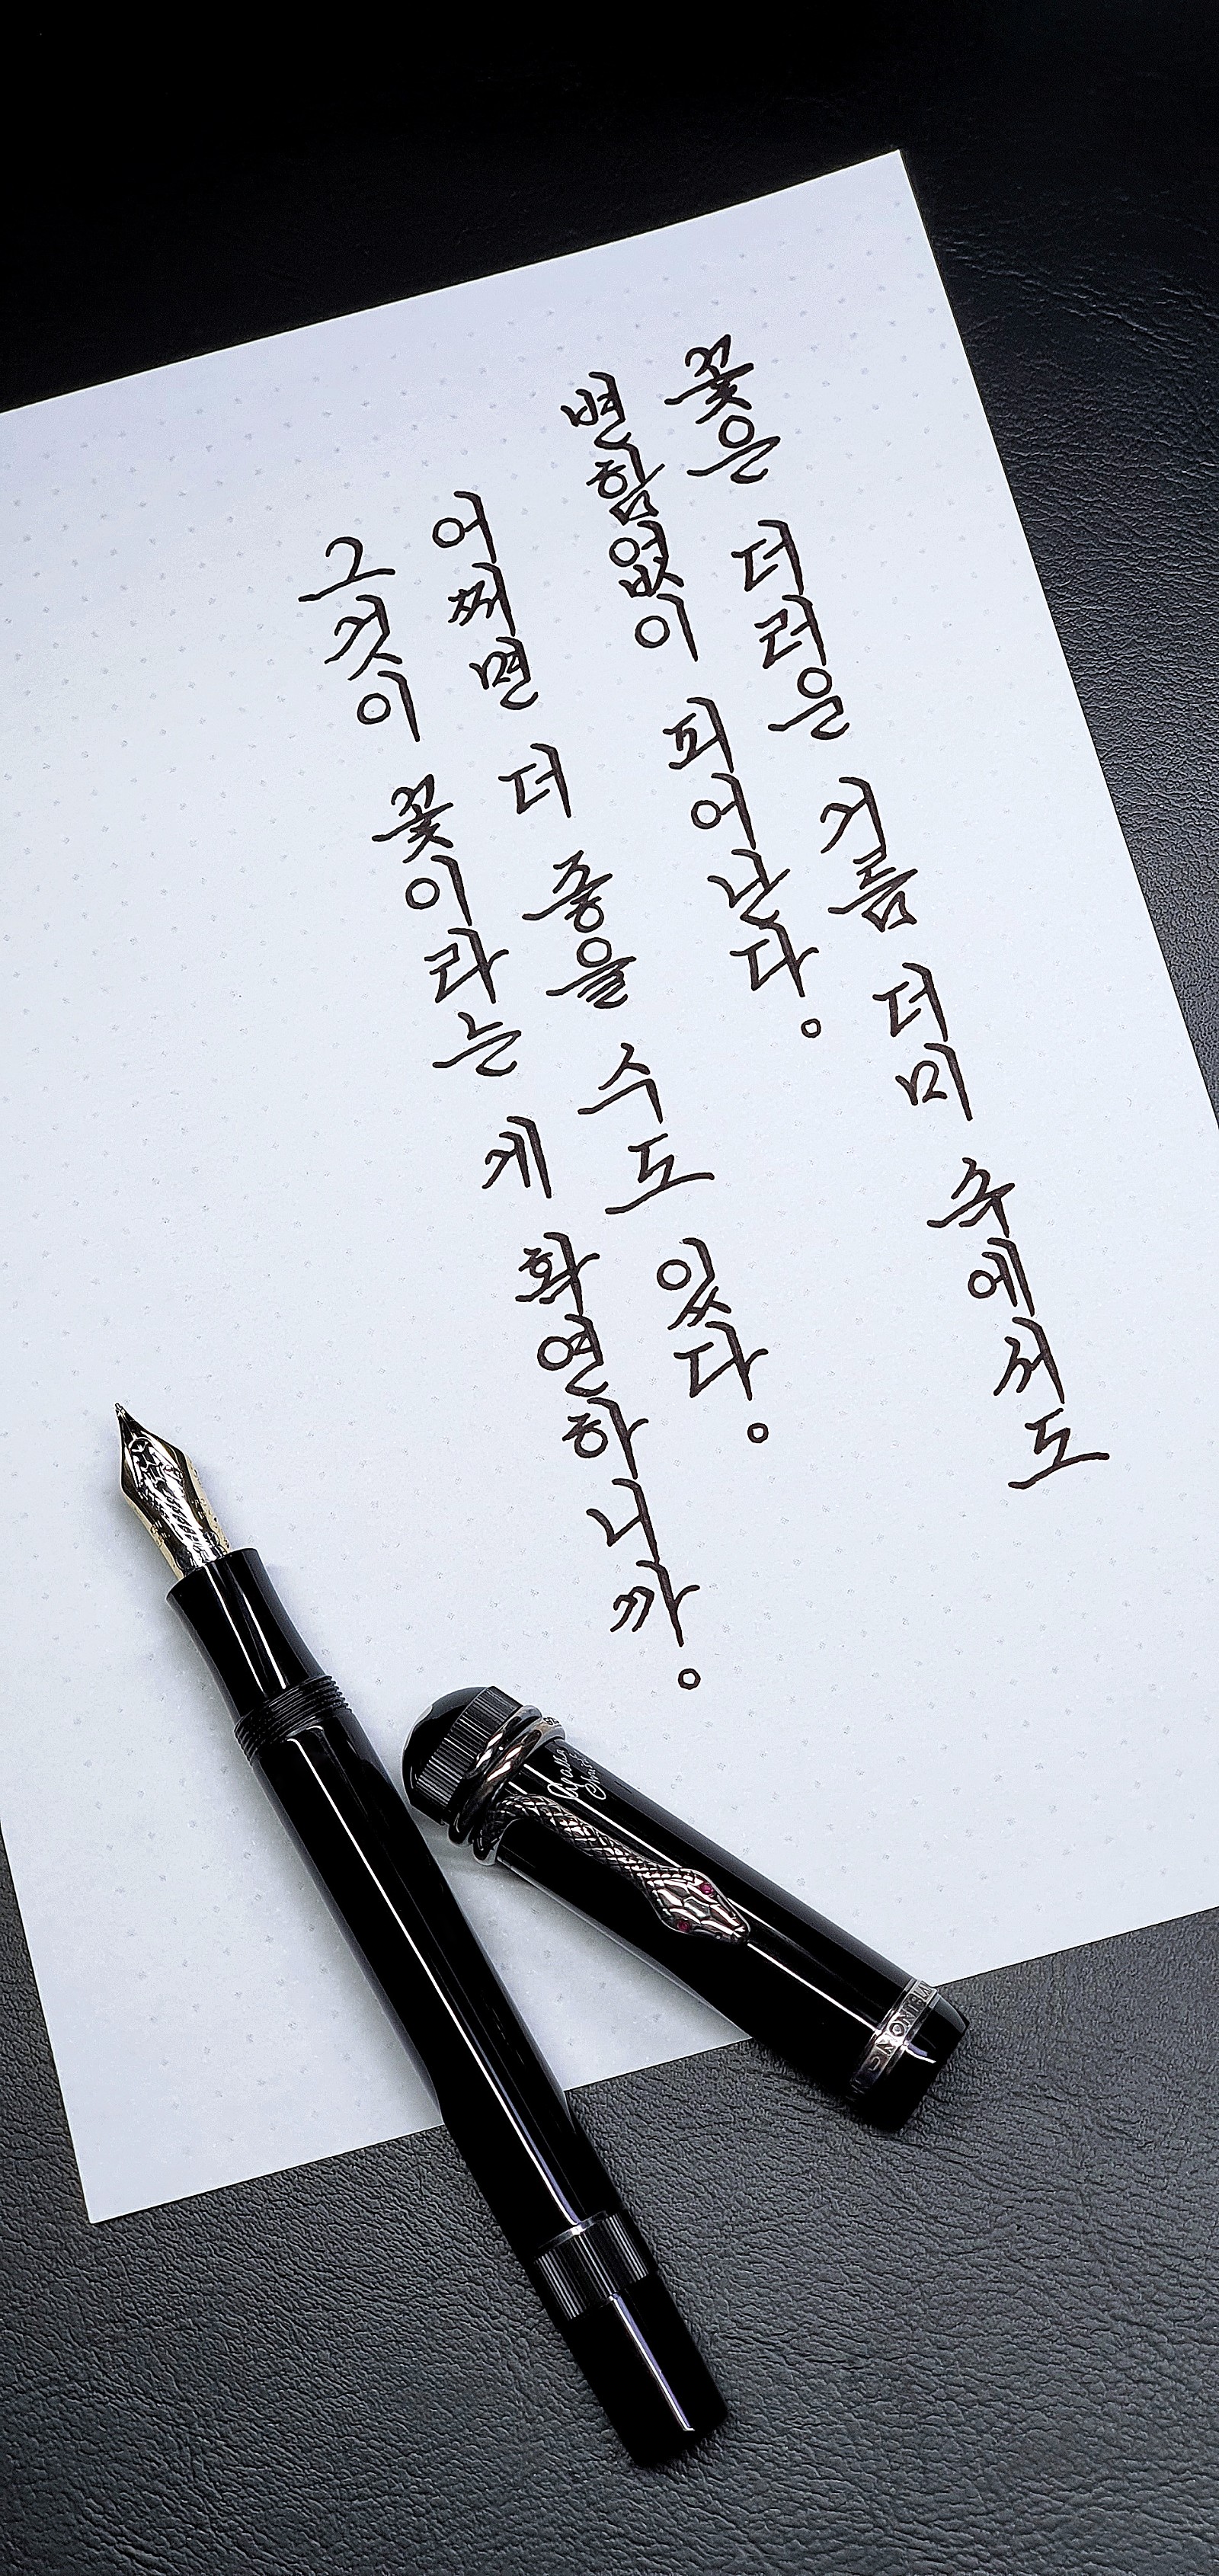 꽃은 더러운 거름 더미 속에서도
변함없이 피어난다.
어쩌면 더 좋을 수도 있다.
그것이 꽃이라는 게 확연하니까.
Agatha Christie